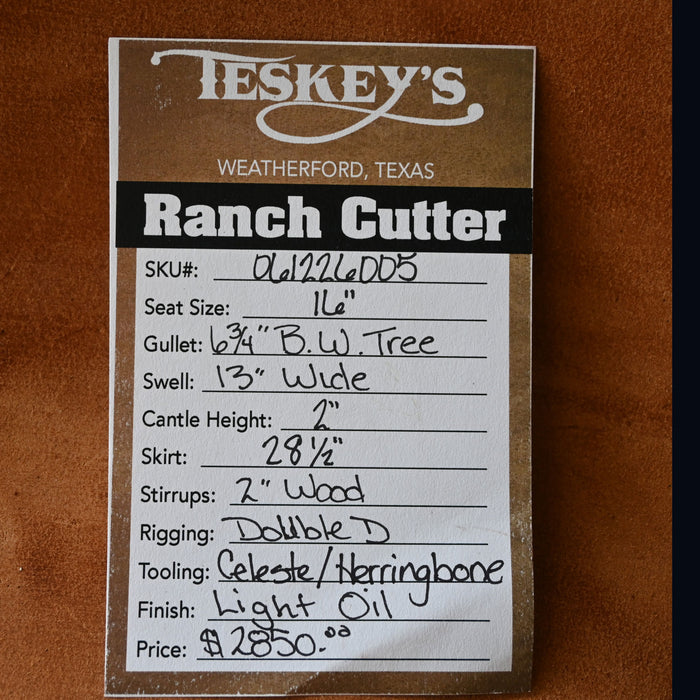 TESKEY'S
WEATHERFORD, TEXAS
Ranch Cutter
SKU#: 061226005
Seat Size: 16"
Gullet: 6 3/4" B.W. Tree
Swell: 13" Wide
Cantle Height: 2"
Skirt: 28 1/2"
Stirrups: 2" Wood
Rigging: Double D
Tooling: Celeste/Herringbone
Finish: Light Oil
Price: $2850.00